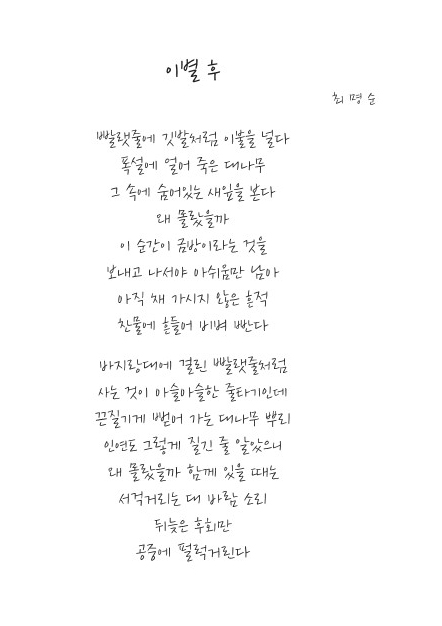 이별 후
최명순
빨랫줄에 깃발처럼 이불을 널다
폭설에 얼어 죽은 대나무
그 속에 숨어있는 새잎을 본다
왜 몰랐을까
이 순간이 금방이라는 것을
보내고 나서야 아쉬움만 남아
아직 채 가시지 않은 흔적
찬물에 흔들어 비벼 빤다
바지랑대에 걸린 빨랫줄처럼
사는 것이 아슬아슬한 줄타기인데
끈질기게 뻗어 가는 대나무 뿌리
인연도 그렇게 질긴 줄 알았으니
왜 몰랐을까 함께 있을 때는
서걱거리는 대 바람 소리
뒤늦은 후회만
공중에 펄럭거린다